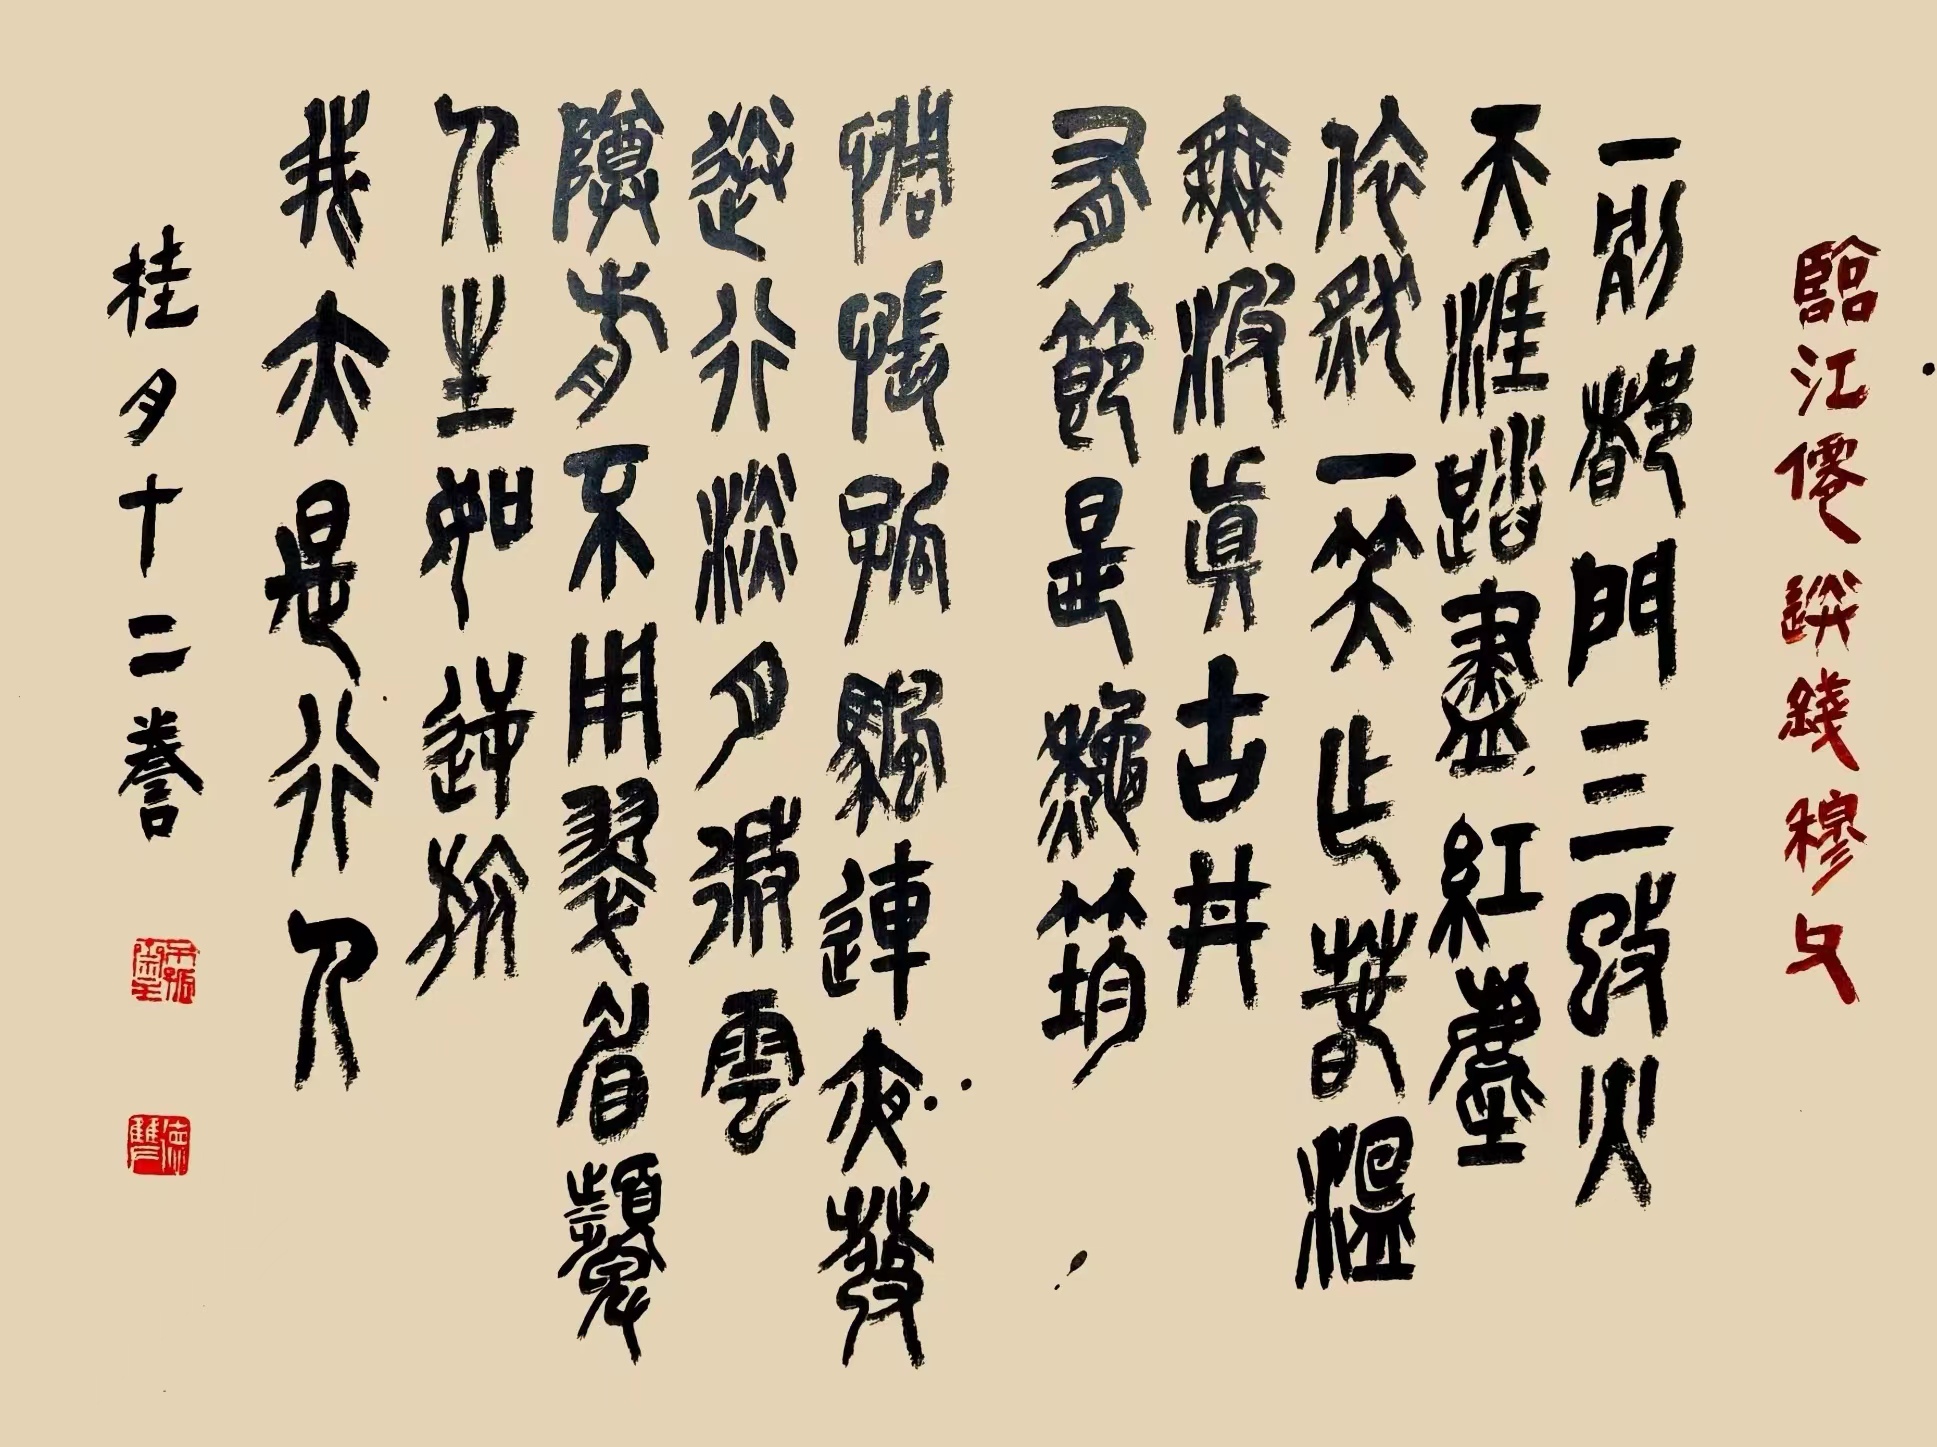 臨江僊 送錢穆父
一別都門三改火
天涯踏盡紅塵
依然一笑作春溫
無波真古井
有節是龝筠
惆悵孤颿連夜發
送行淡月微雲
尊前不用翠眉顰
人生如逆旅
我亦是行人
桂夕十二誊